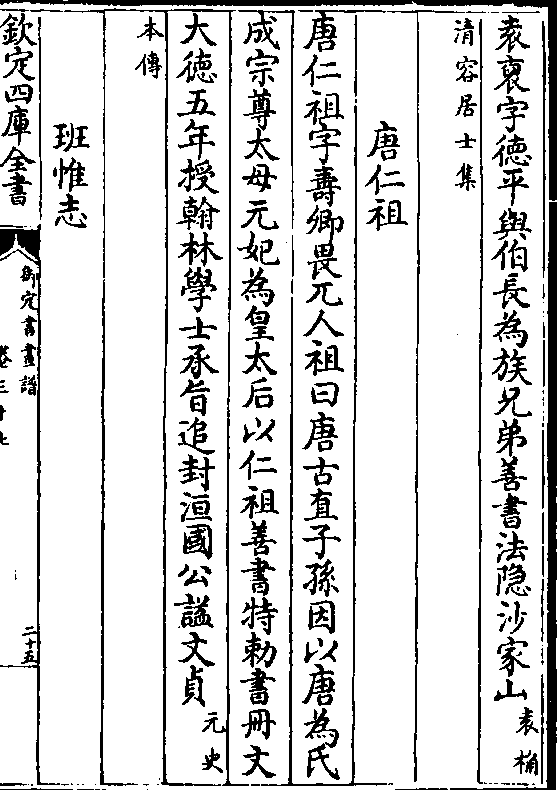 袁裒字德平與伯長為族兄弟善書法隱沙家山袁桷
清容居士集
唐仁祖
唐仁祖字壽卿畏兀人祖曰唐古直子孫因以唐為氏
成宗尊太母元妃為皇太后以仁祖善書特勅書冊文
大徳五年授翰林學士承旨追封洹國公諡文貞元史
本傳
班惟志
欽定四庫全書
御定書畫譜
卷三十七
二十五